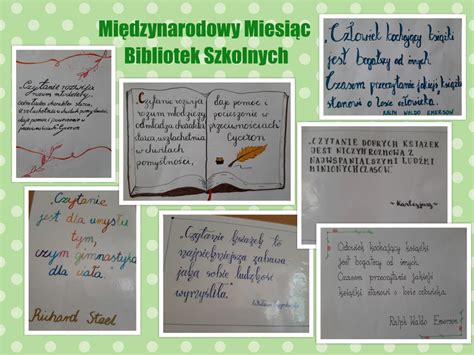 Międzynarodowy Miesiąc
Bibliotek Szkolnych
„Czytanie rozwija
rozum młodzieży,
odmładza charakter starca,
uszlachetnia w chwilach pomyślności,
daje pomoc i pocieszenie w
przeciwnościach"
Cyceron
„Czytanie rozwija
rozum młodzieży,
odmładza charakter
starca, uszlachetnia
w chwilach
pomyślności,
daje pomoc i
pocieszenie w
przeciwnościach"
Cyceron
„Człowiek kochający książki
jest bogatszy od innych.
Czasem przeczytanie jakiejś książki
stanowi o losie człowieka.
RALPH WALDO EMERSON
„CZYTANIE DOBRYCH KSIĄŻEK
JEST NICZYM ROZMOWA Z
NAJWSPANIALSZYMI LUDŹMI
MINIONYCH CZASÓW.
~Kartezjusz~
„Czytanie
jest dla umysłu
tym,
czym gimnastyka
dla ciała."
Richard Steel
„Czytanie książek to
najpiękniejsza zabawa,
jaką sobie ludzkość
wymyśliła."
Człowiek kochający książki
jest bogatszy od innych.
Czasem przeczytanie jakiejś
książki stanowi o losie człowieka.
Ralph Waldo Emerson